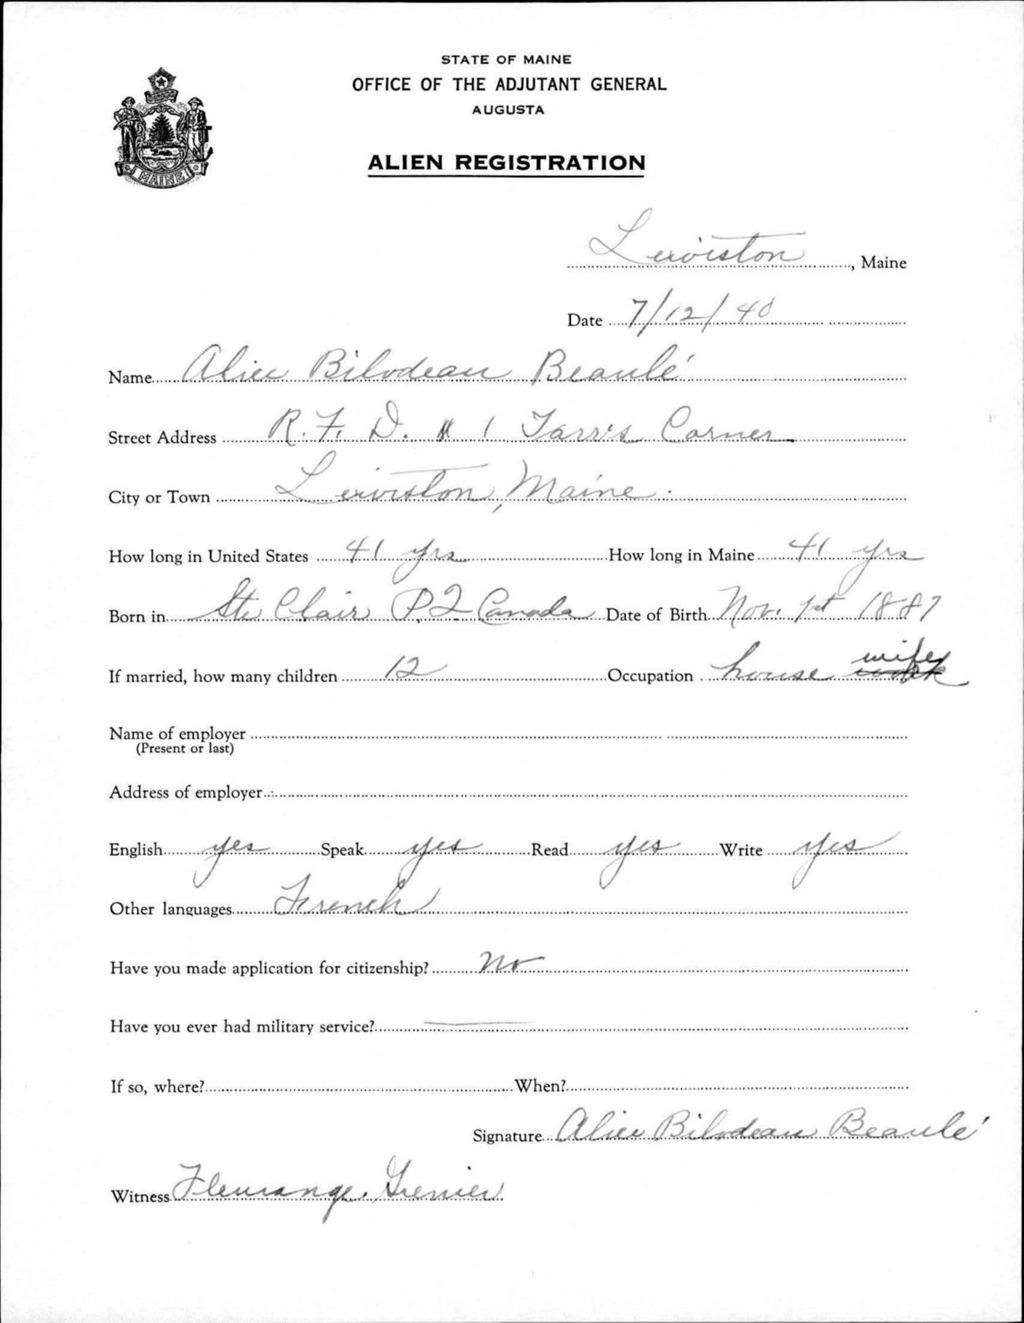 STATE OF MAINE
OFFICE OF THE ADJUTANT GENERAL
AUGUSTA
ALIEN REGISTRATION
MAINE
Lewiston, Maine
Date 7/12/40
Name Alice Bilodeau Beaulé
Street Address R. F. D. # 1 Tarr's Corner
City or Town Lewiston, Maine.
How long in United States 41 yrs How long in Maine 41 yrs
Born in Ste Clair P.Q. Canada Date of Birth Nov. 1st 1887
If married, how many children 12 Occupation house wife work
Name of employer
(Present or last)
Address of employer
English yes Speak yes Read yes Write yes
Other languages French
Have you made application for citizenship? No
Have you ever had military service? —
If so, where? When?
Signature Alice Bilodeau Beaulé
Witness Fleurange Grenier